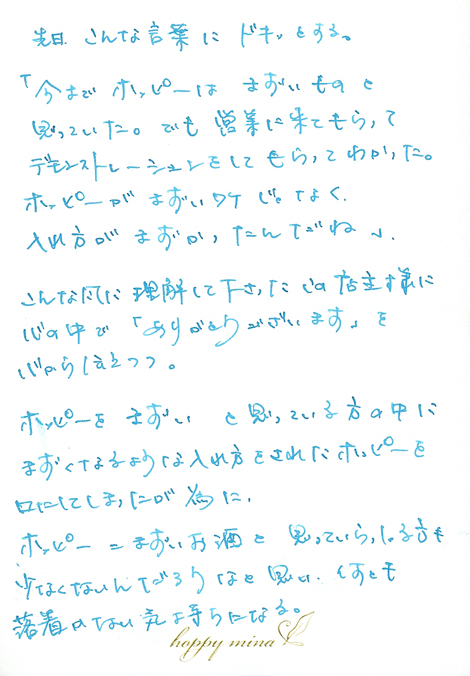 先日 こんな言葉に ドキッとする。
「今まで ホッピーは まずいものと
思っていた。でも 営業に来てもらって
デモンストレーションをしてもらってわかった。
ホッピーが まずいワケじゃなく、
入れ方が まずかったんだね」。
こんな風に理解して下さったこの店主様に
心の中で「ありがとうございます」を
心から伝えつつ。
ホッピーを まずい と思っている方の中に
まずくなるような入れ方をされたホッピーを
口にしてしまったが為に、
ホッピー=まずいお酒と 思っていらっしゃる方も
少なくないんだろうなと思い、
落着かない気持ちになる。
happy mina